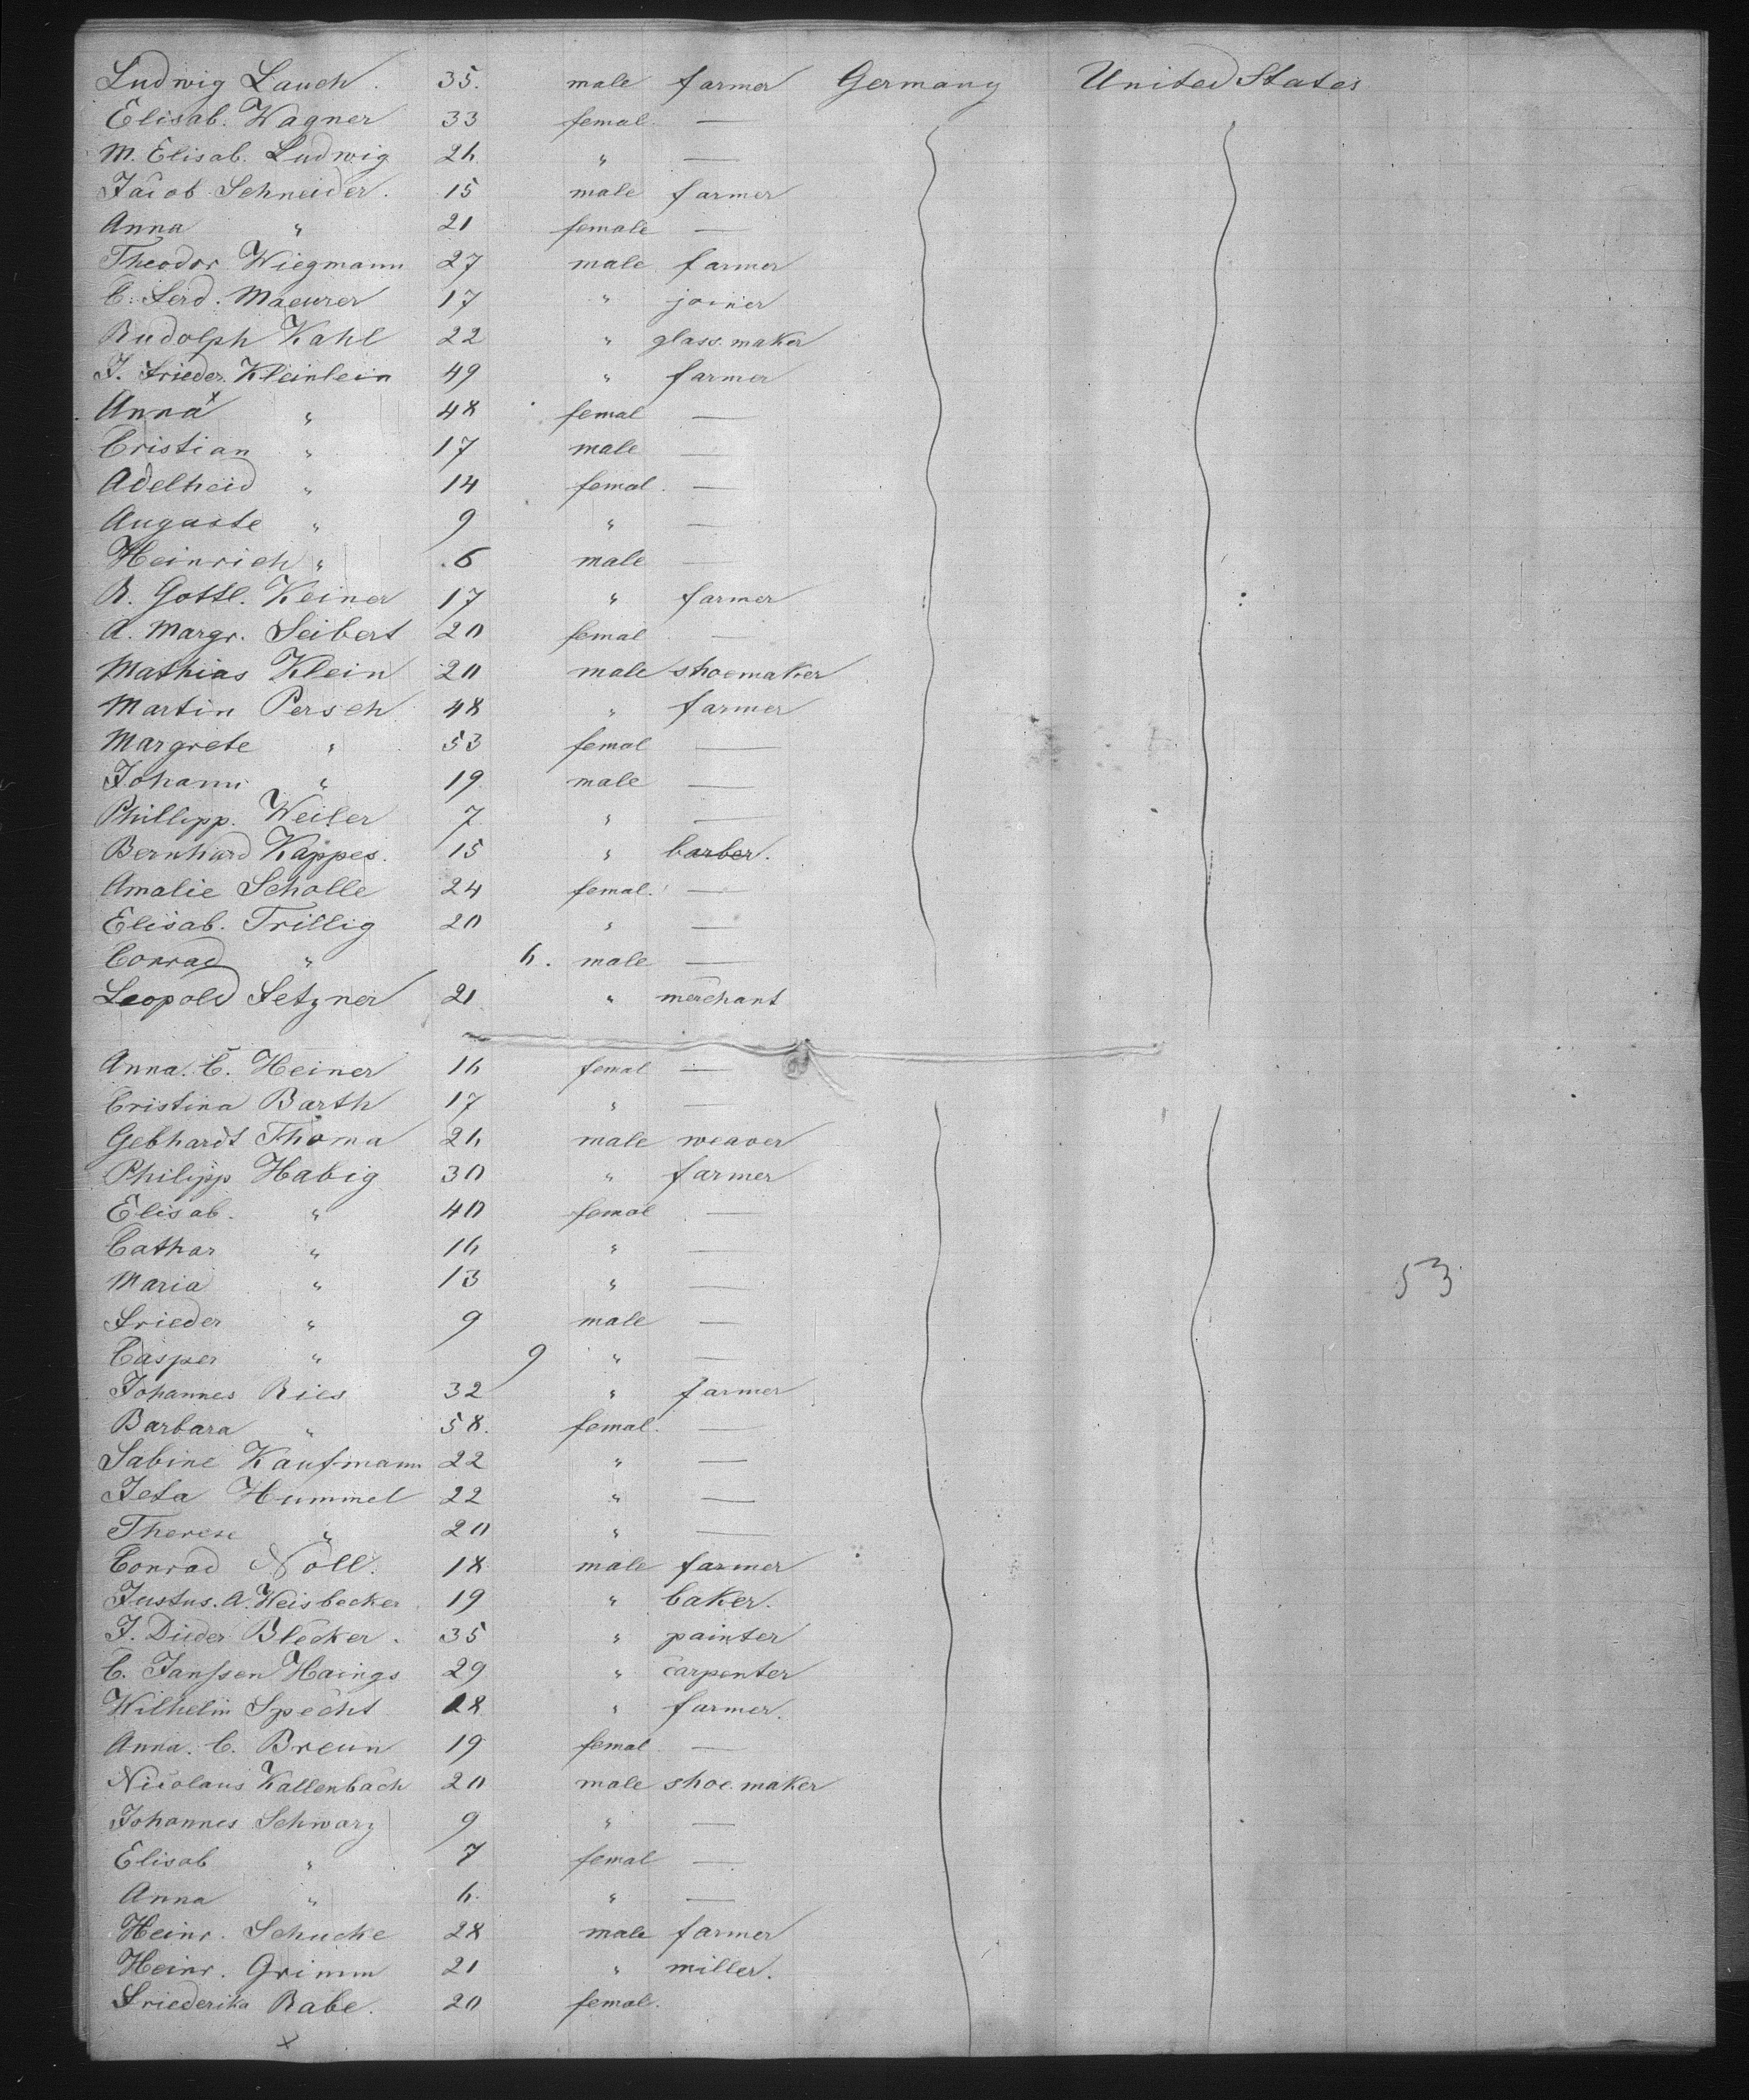 Ludwig Lauch. 35. male farmer Germany United States
Elisab. Wagner 33 femal. —
M. Elisab. Ludwig 26 " —
Jacob Schneider. 15 male farmer
Anna " 21 female —
Theodor Wiegmann 27 male farmer
C. Ferd. Maeurer 17 " joiner
Rudolph Kahl 22 " glass maker
J. Frieder. Kleinlein 49 " farmer
Anna x " 48 femal —
Cristian " 17 male —
Adelheid " 14 femal. —
Auguste " 9 " —
Heinrich " 6 male —
R. Gottl. Keiner 17 " farmer
A. Margr. Seibert 20 femal —
Mathias Klein 20 male shoemaker
Martin Persch 48 " farmer
Margrete " 53 femal —
Johann " 19 male —
Phillipp. Weiler 7 " —
Bernhard Kappes. 15 " barber.
Amalie Scholle 24 femal. —
Elisab. Trillig 20 " —
Conrad " 6. male —
Leopold Setzner 21 " merchant
Anna. C. Heiner 16 femal —
Cristina Barth 17 " —
Gebhardt Thoma 26 male weaver
Philipp Habig 30 " farmer
Elisab. " 40 femal —
Cathar " 16 " —
Maria " 13 " —
53
Frieder " 9 male —
Casper " 9 " —
Johannes Ries 32 " farmer
Barbara " 58. femal. —
Sabine Kaufmann 22 " —
Jeta Hummel 22 " —
Therese " 20 " —
Conrad Noll. 18 male farmer
Justus. A. Weisbecker 19 " baker.
J. Dieder Blecker. 35 " painter
C. Janssen Haings 29 " carpenter
Wilhelm Specht 28 " farmer.
Anna. C. Breun 19 femal —
Nicolaus Kallenbach 20 male shoe maker
Johannes Schwarz 9 " —
Elisab " 7 femal —
Anna " 6. " —
Heinr. Schucke 28 male farmer
Heinr. Grimm 21 " miller.
Friederika Rabe. 20 femal.
x